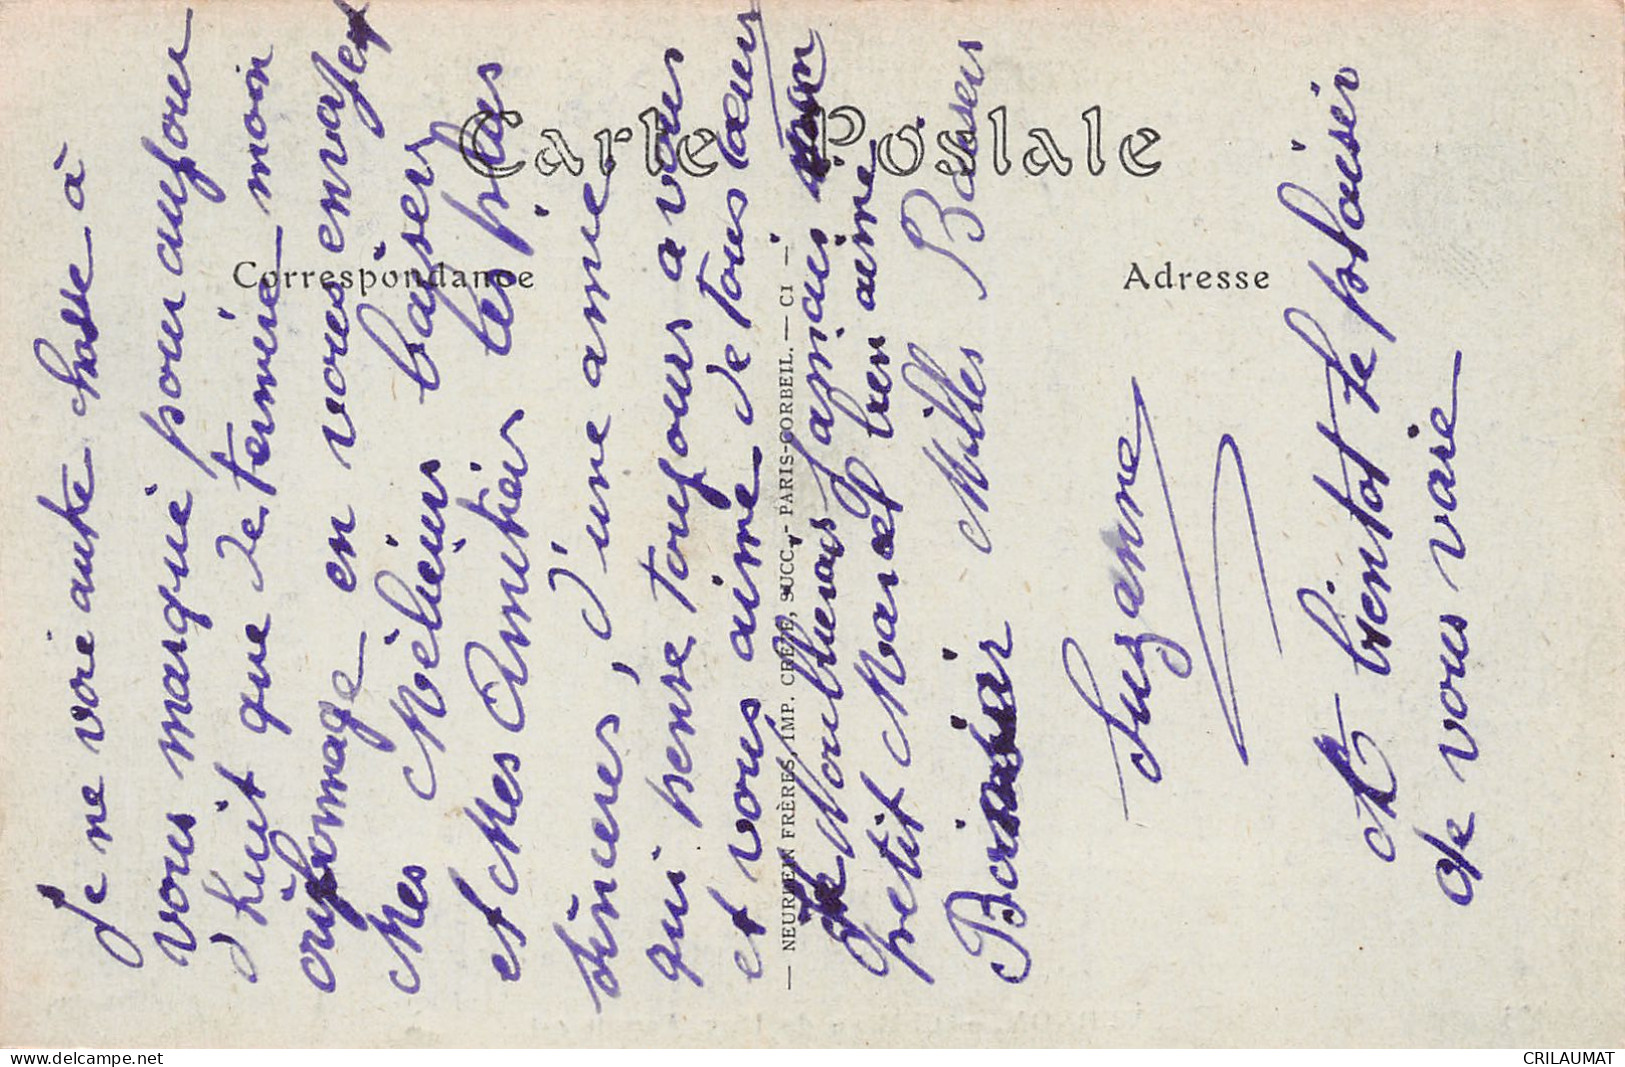 Carte Postale
Correspondance
Adresse
— NEURDEIN FRÈRES, IMP. CRÉTÉ, SUCC. - PARIS-CORBEIL. — CI —
Je ne voie autre chosse à
vous marqué pour aujour
d'huit que de terminée moin
en vous envoyent
Mes Mélieur baiser
et Mes Amitiér les plus
sinceres, d'une amie
qui pense toujours a vous
et vous aime de tous cœur
Je N'oublierais jamais mon
petit Marcel bien aimé
Bonsoir Milles Baisers
Suzanne
et bientot le plaisir
de vous voire
delcampe.net
CRILAUMAT